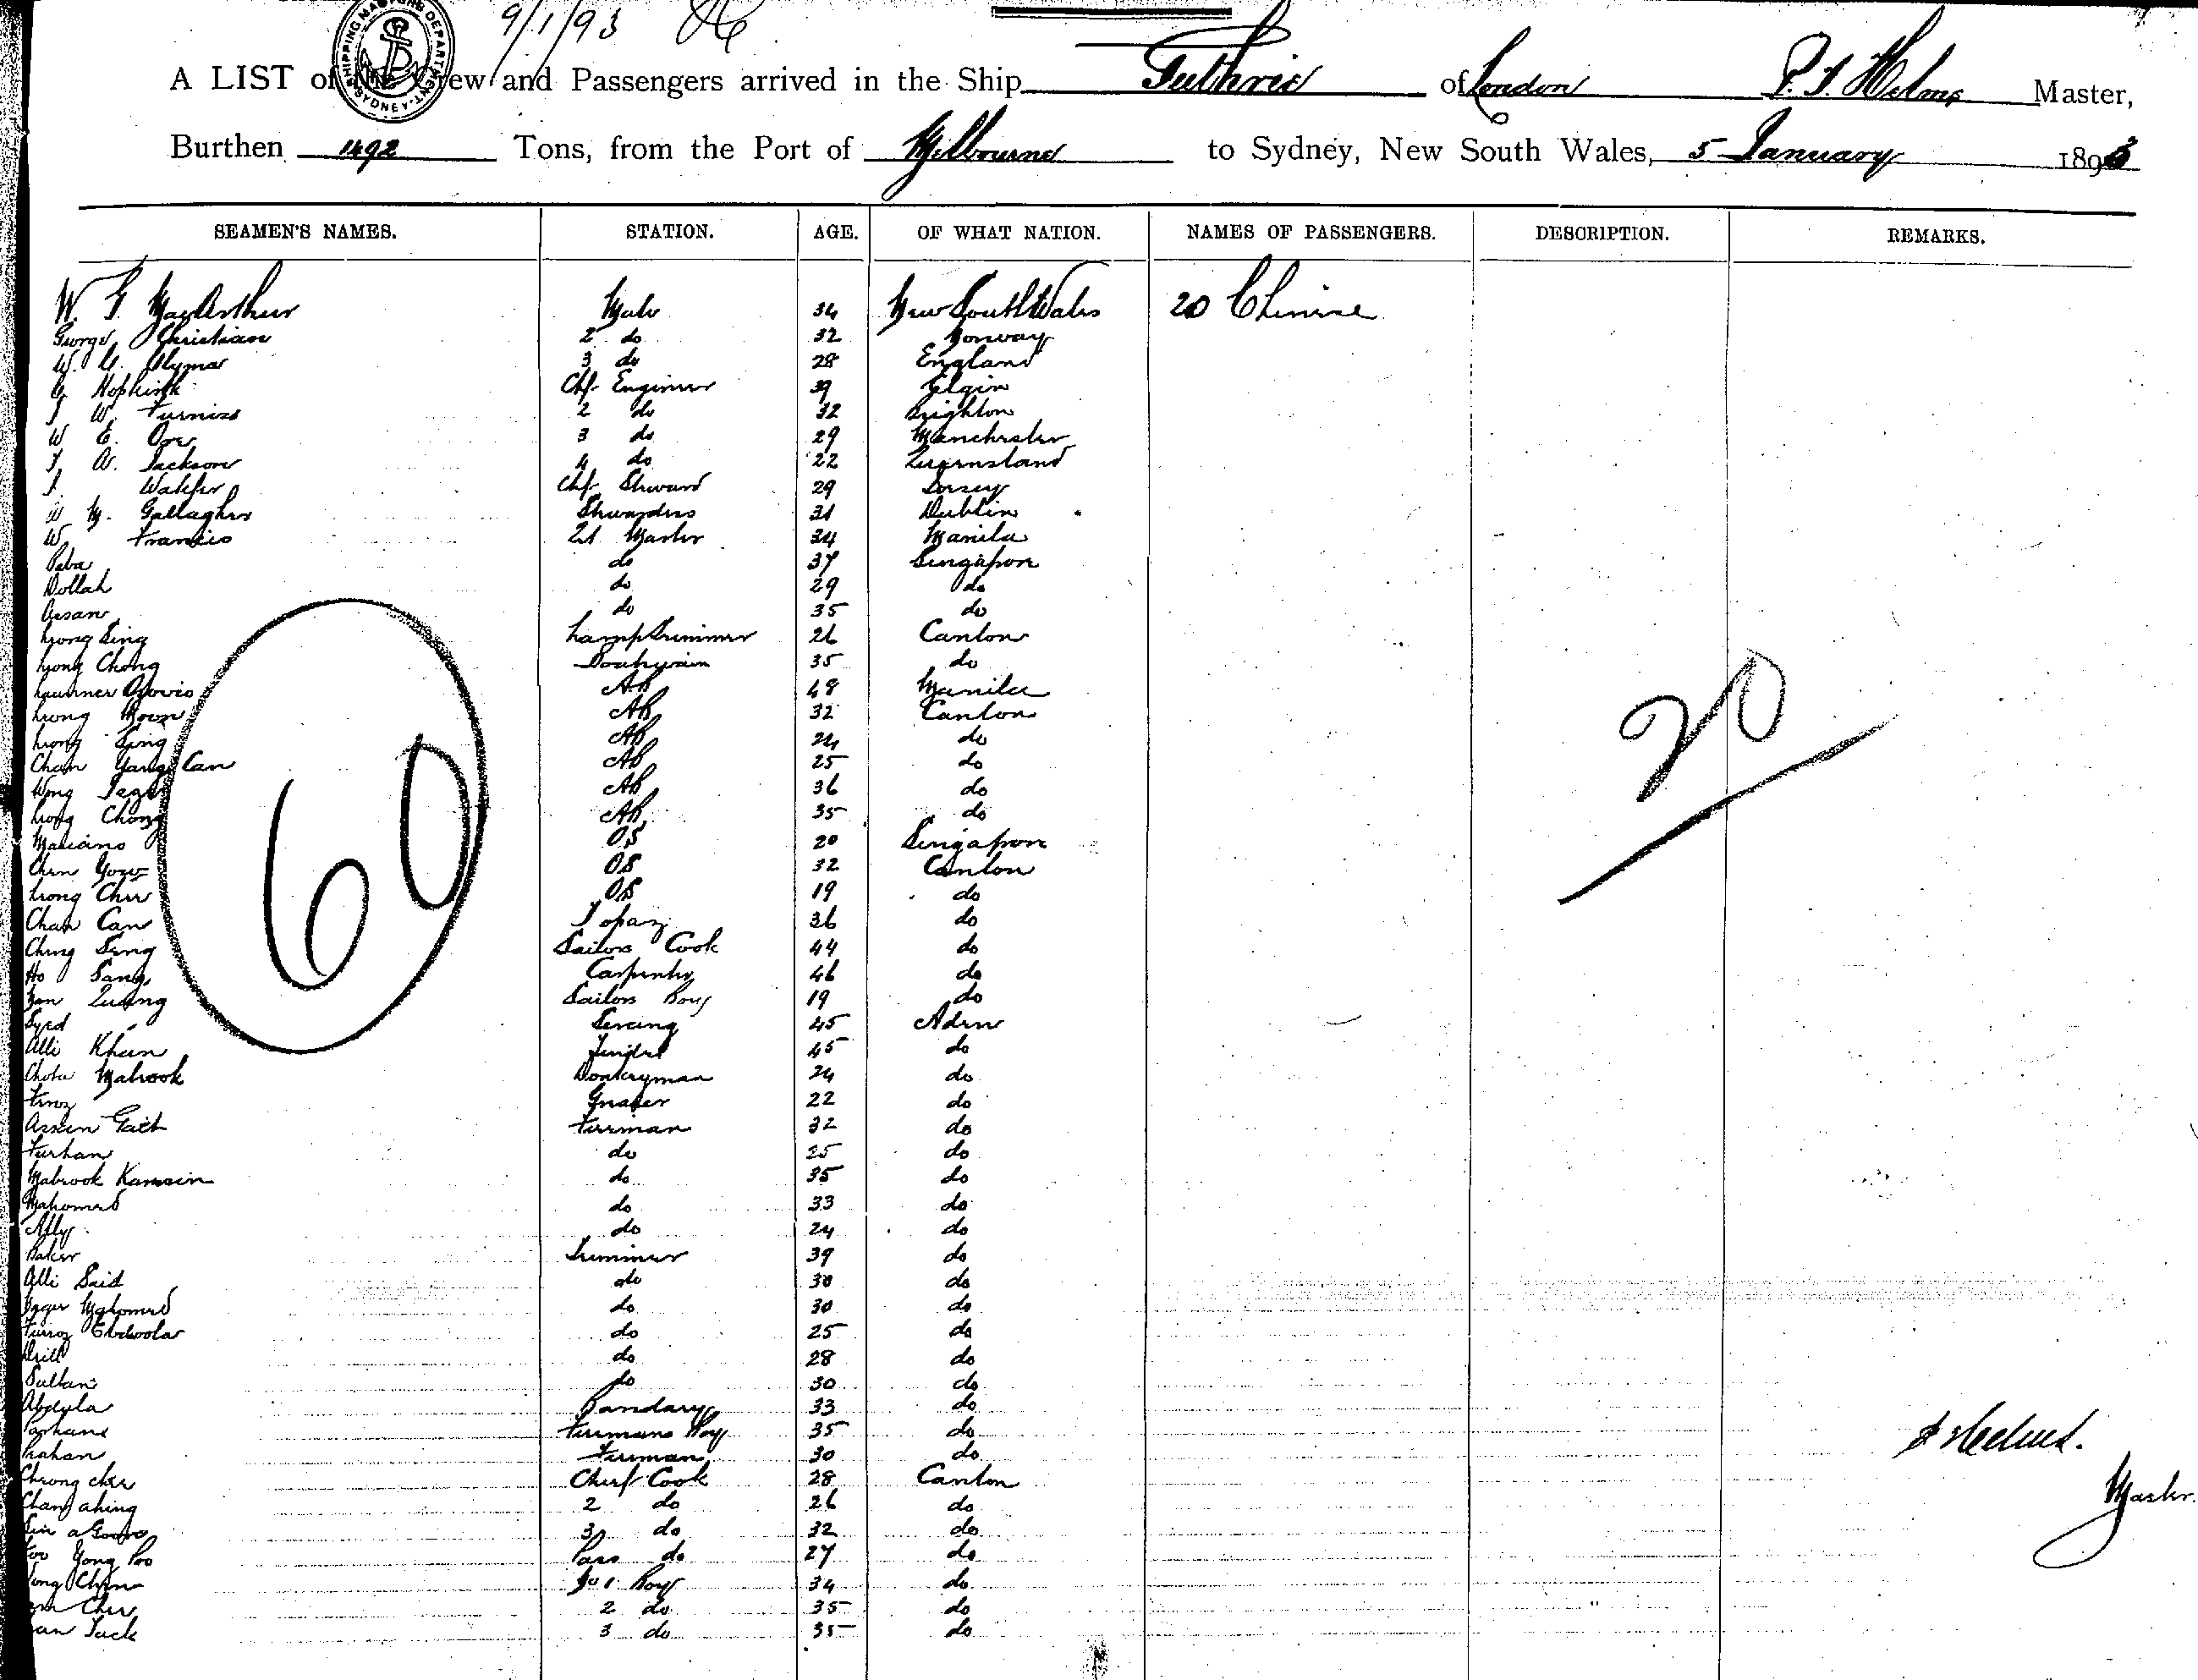 9/1/93
SHIPPING MASTERS DEPARTMENT SYDNEY
A LIST of the Crew and Passengers arrived in the Ship Guthrie of London P. T. Helms Master,
Burthen 1492 Tons, from the Port of Melbourne to Sydney, New South Wales, 5 January 1893
SEAMEN'S NAMES. STATION. AGE. OF WHAT NATION. NAMES OF PASSENGERS. DESCRIPTION. REMARKS.
W. G. MacArthur Mate 34 New South Wales 20 Chinese
George Christian 2 do 32 Norway
W. 3 do 28 England
G. Hopkirk Chf. Engineer 39 Elgin
J W. Furniss 2 do 32 Brighton
W E. Orr 3 do 29 Manchester
J. W. Jackson 4 do 22 Queensland
J. Walker Chf. Steward 29 Jersey
M. Gallagher Stewardess 31 Dublin
W Francis Qt. Master 34 Manila
Baba do 37 Singapore
Dollah do 29 do
Assan do 35 do
Leong Sing Lamptrimmer 26 Canton
Leong Chong 35 do
AB 48 Manila
Leong Moon AB 32 Canton
Leong Sing AB 24 do
Chan Yang Can AB 25 do
Wong AB 36 do
Leong Chong AB 35 do
Mariano OS 20 Singapore
Chen Yow OS 32 Canton
Leong Chee OS 19 do
Chan Can Topaz 36 do
Ching Sing Sailors Cook 44 do
Ho Sang Carpenter 46 do
Quang Sailors Boy 19 do
Syed Serang 45 Aden
Alli Khan Tindal 45 do
Chota Mabrook Donkeyman 24 do
Firoz Greaser 22 do
Assen Fireman 32 do
Farhan do 25 do
Mabrook do 35 do
Mahomed do 33 do
Ally do 24 do
Baker Trimmer 39 do
Alli Said do 30 do
Mahomed do 30 do
do 25 do
do 28 do
Sultan do 30 do
Abdyla Bandary 33 do
Firemans Boy 35 do
Fireman 30 do
Cheong Chee Chief Cook 28 Canton
Chang ahing 2 do 26 do
3 do 32 do
Yong Poo Pass do 27 do
No 1 Boy 34 do
Chee 2 do 35 do
3 do 35 do
60
20
Master.